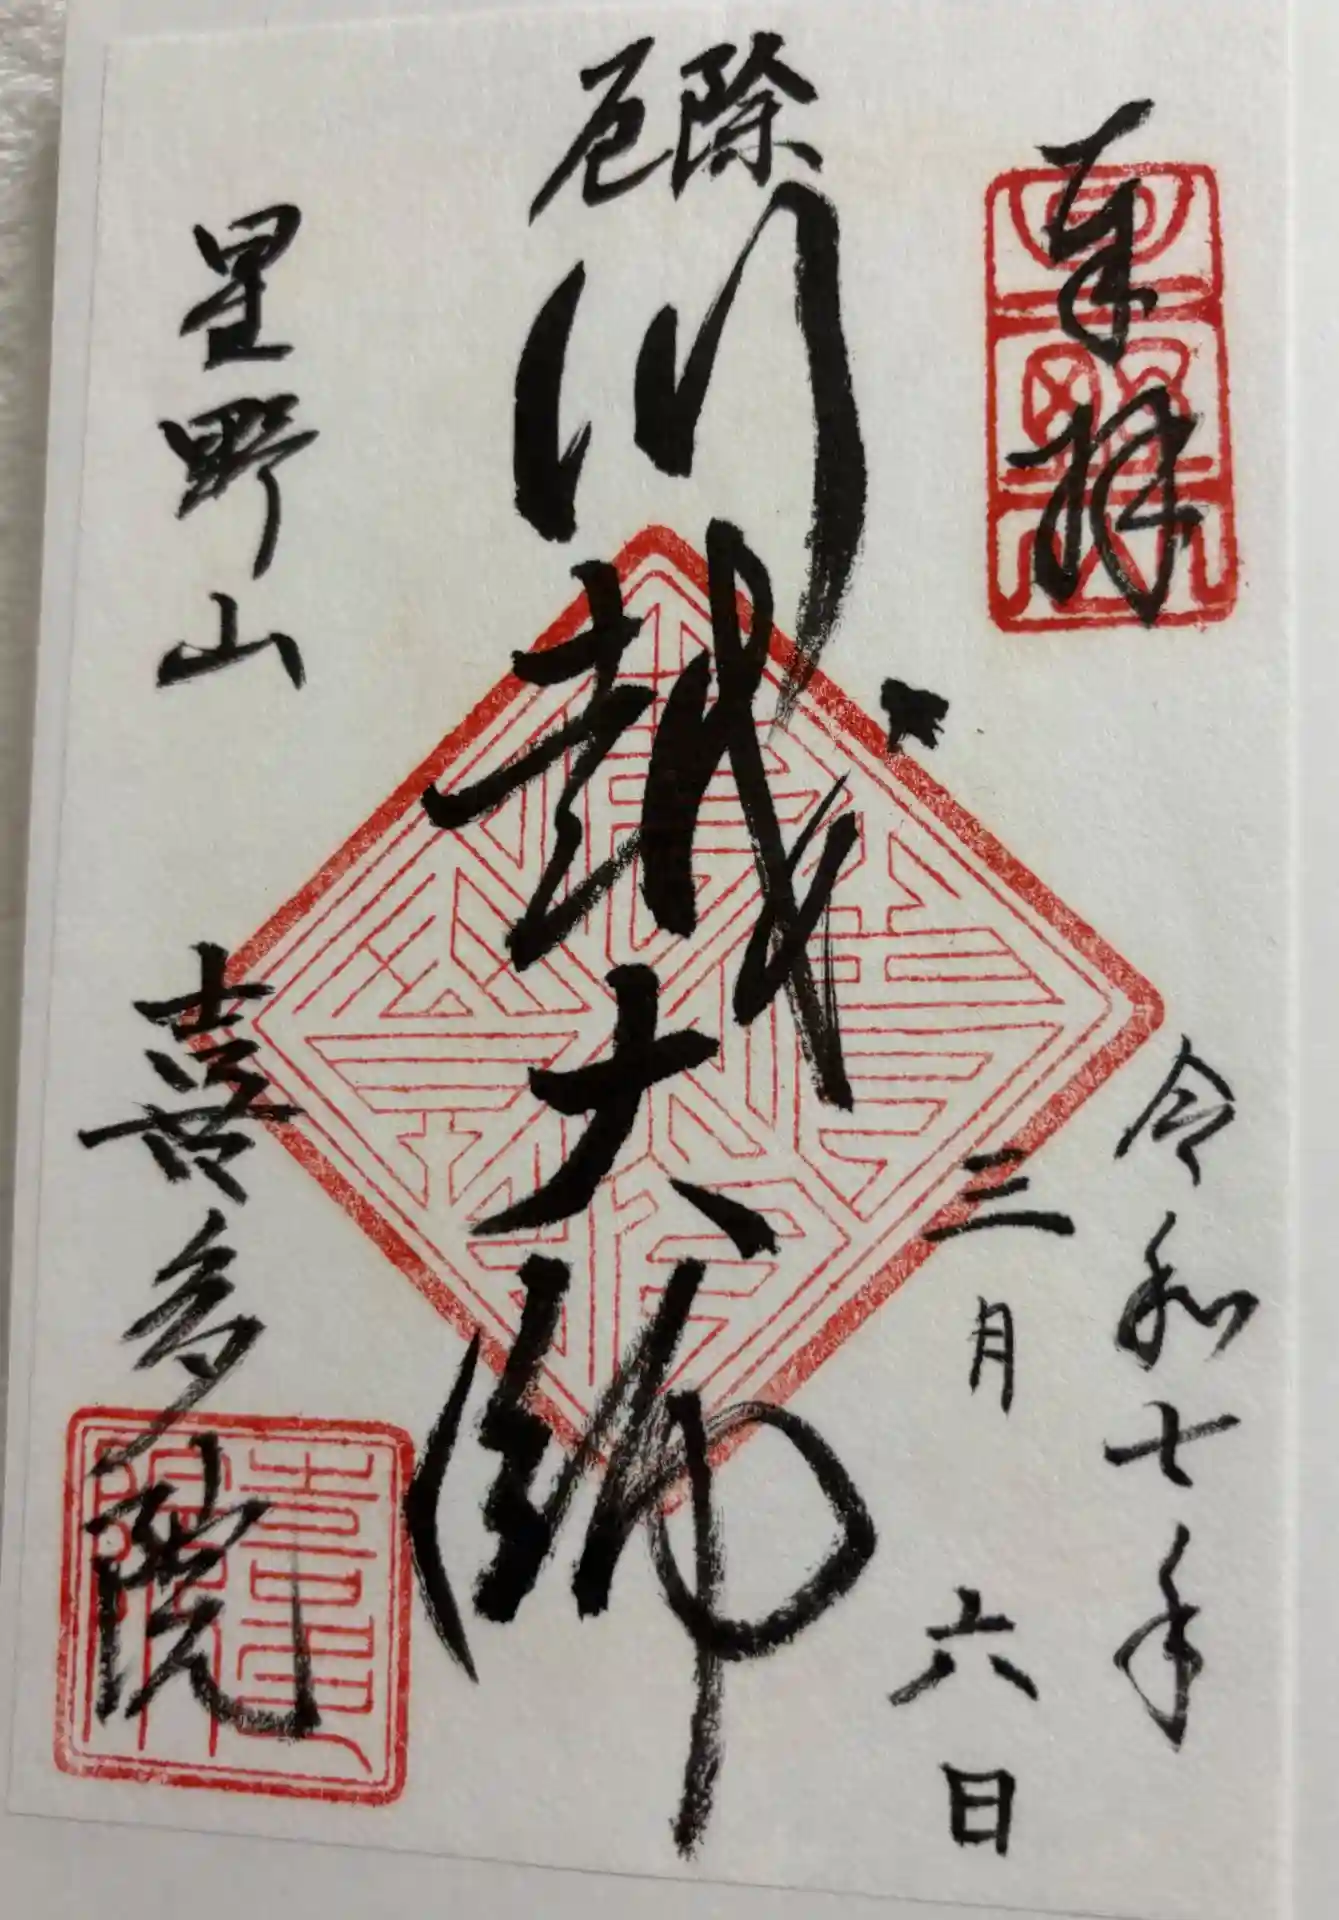 奉拝
令和七年
三月六日
厄除
川越大師
星野山
喜多院